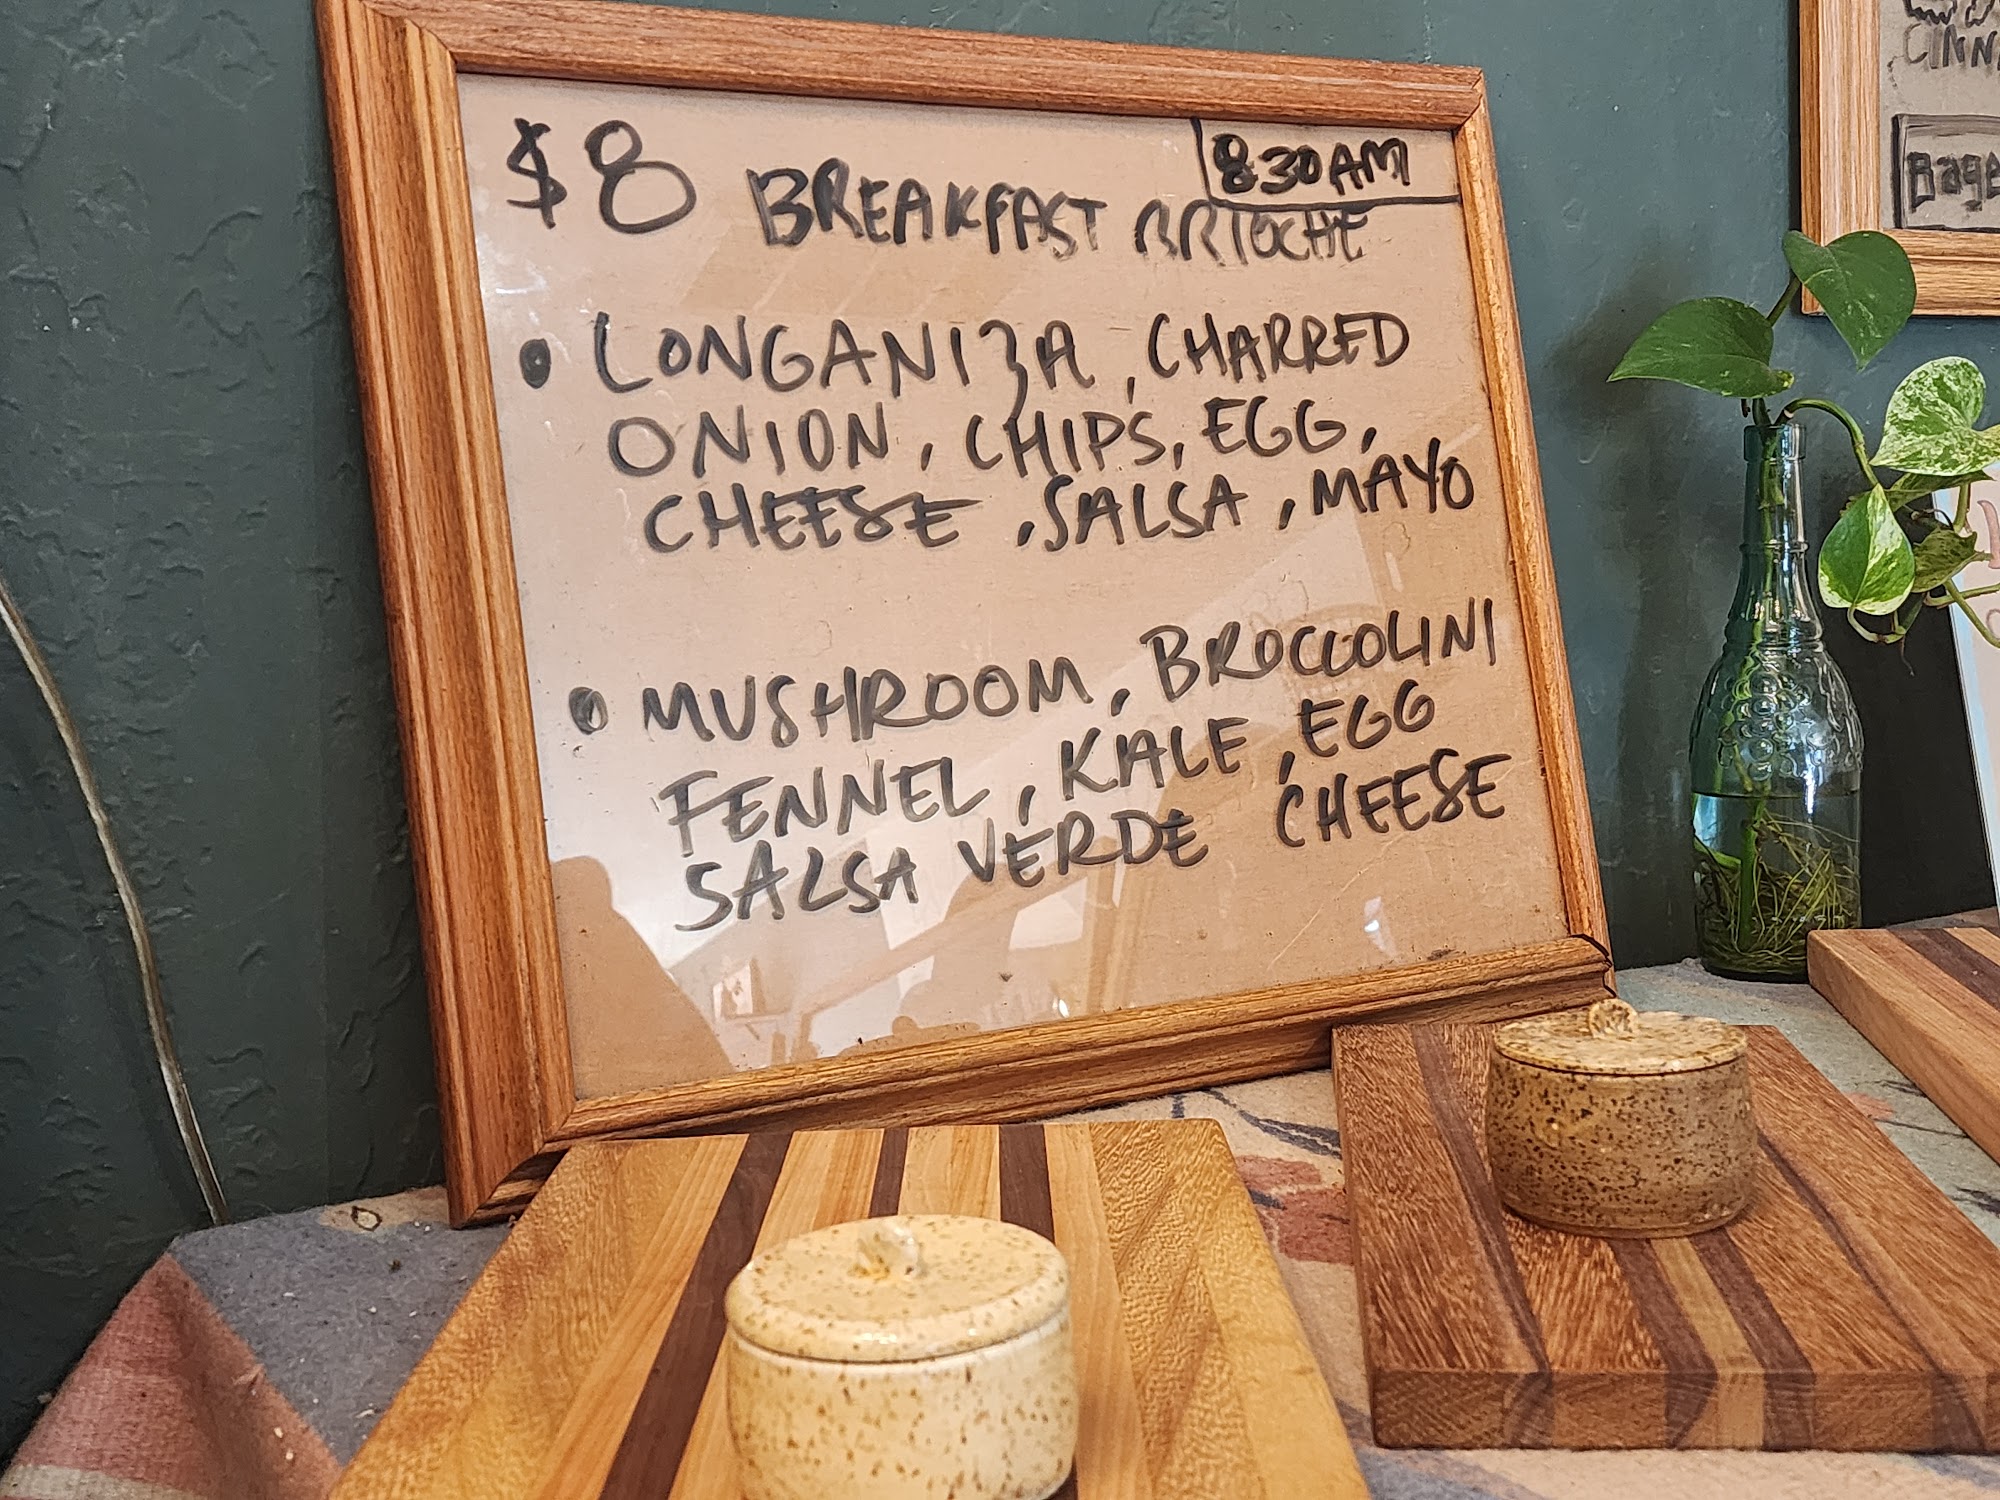 $8 BREAKFAST BRIOCHE
8:30AM
• LONGANIZA, CHARRED
ONION, CHIPS, EGG,
CHEESE, SALSA, MAYO
• MUSHROOM, BROCCOLINI
FENNEL, KALE, EGG
SALSA VERDE CHEESE